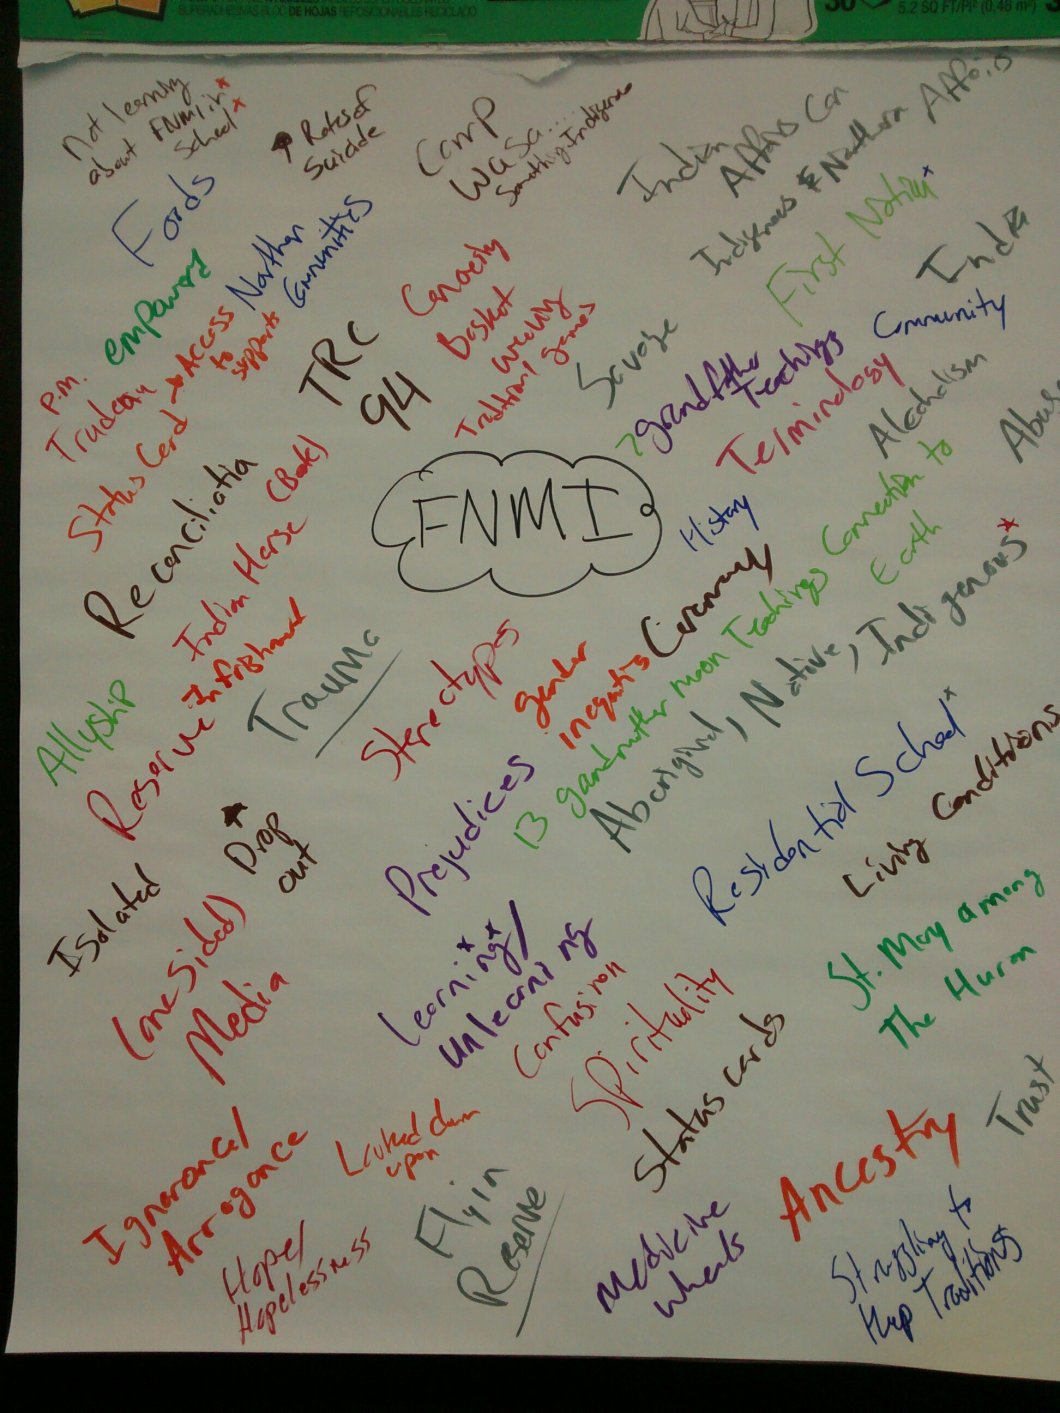 SUPERADHESIVAS BLOC DE HOJAS REPOSICIONABLES RECICLADO
30
5.2 SQ FT/PI² (0,48 m²)
Not learning
about FNMI in
School
↑ Rates of
Suicide
Camp
Wasa....
Something Indigenous
Indian
Affairs Can
Indigenous & Northern Affairs
Foods
Northern
Communities
First Nation
India
empowery
P.M.
Trudeau
Status Card → Access
to
supports
TRC
94
Canoeing
Basket
Weaving
Traditional games
Savage
7 grandfather
Teachings
Community
Terminology
Alcoholism
Abuse
Reconciliatia
Indian Horse (Book)
FNMI
History
Ceremony
13 grandmother moon Teachings
Connection to
Earth
Allyship
Reserve
Trauma
Stereotypes
gender
Aboriginal, Native, Indigenous
Prejudices
Residential School
Living Conditions
Isolated
↑ Drop
out
(one sided)
Media
Learning/
unlearning
Confusion
Spirituality
Status cards
St. Mary among
The Huron
Trust
Ignorance/
Arrogance
Looked down
upon
Hope/
Hopelessness
Fly in
Reserve
Medicine
Wheels
Ancestry
Struggling to
Keep Traditions